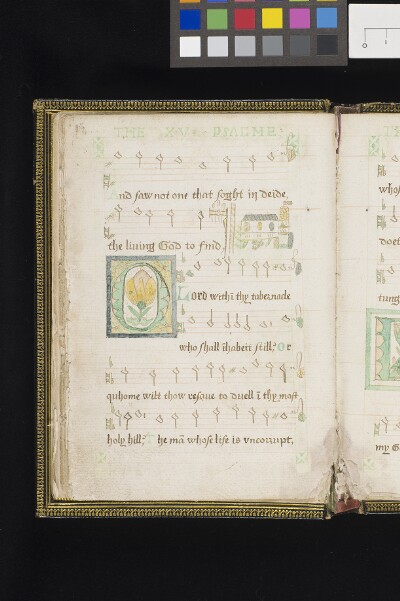 THE XV PSALME
And saw not one that soght in deide,
the living God to find,
O Lord wtthī thy tabernade
who shall īhabeit still; Or
quhome wilt thow resaue to duell ī thy most
holy hill; The mā whose life is vncorrupt,
whos
doet
tung
my G